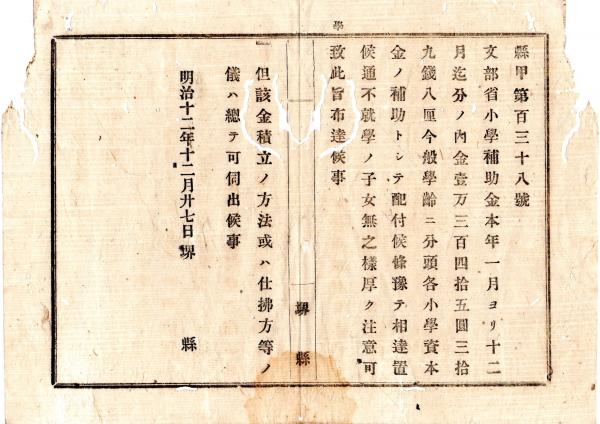 學
縣甲第百三十八號
文部省小學補助金本年一月ヨリ十二
月迄分ノ內金壹万三百四拾五圓三拾
九錢八厘今般學齡ニ分頭各小學資本
金ノ補助トシテ配付候條豫テ相達置
候通不就學ノ子女無之樣厚ク注意可
致此旨布達候事
堺縣
但該金積立ノ方法或ハ仕拂方等ノ
儀ハ總テ可伺出候事
明治十二年十二月廿七日堺縣